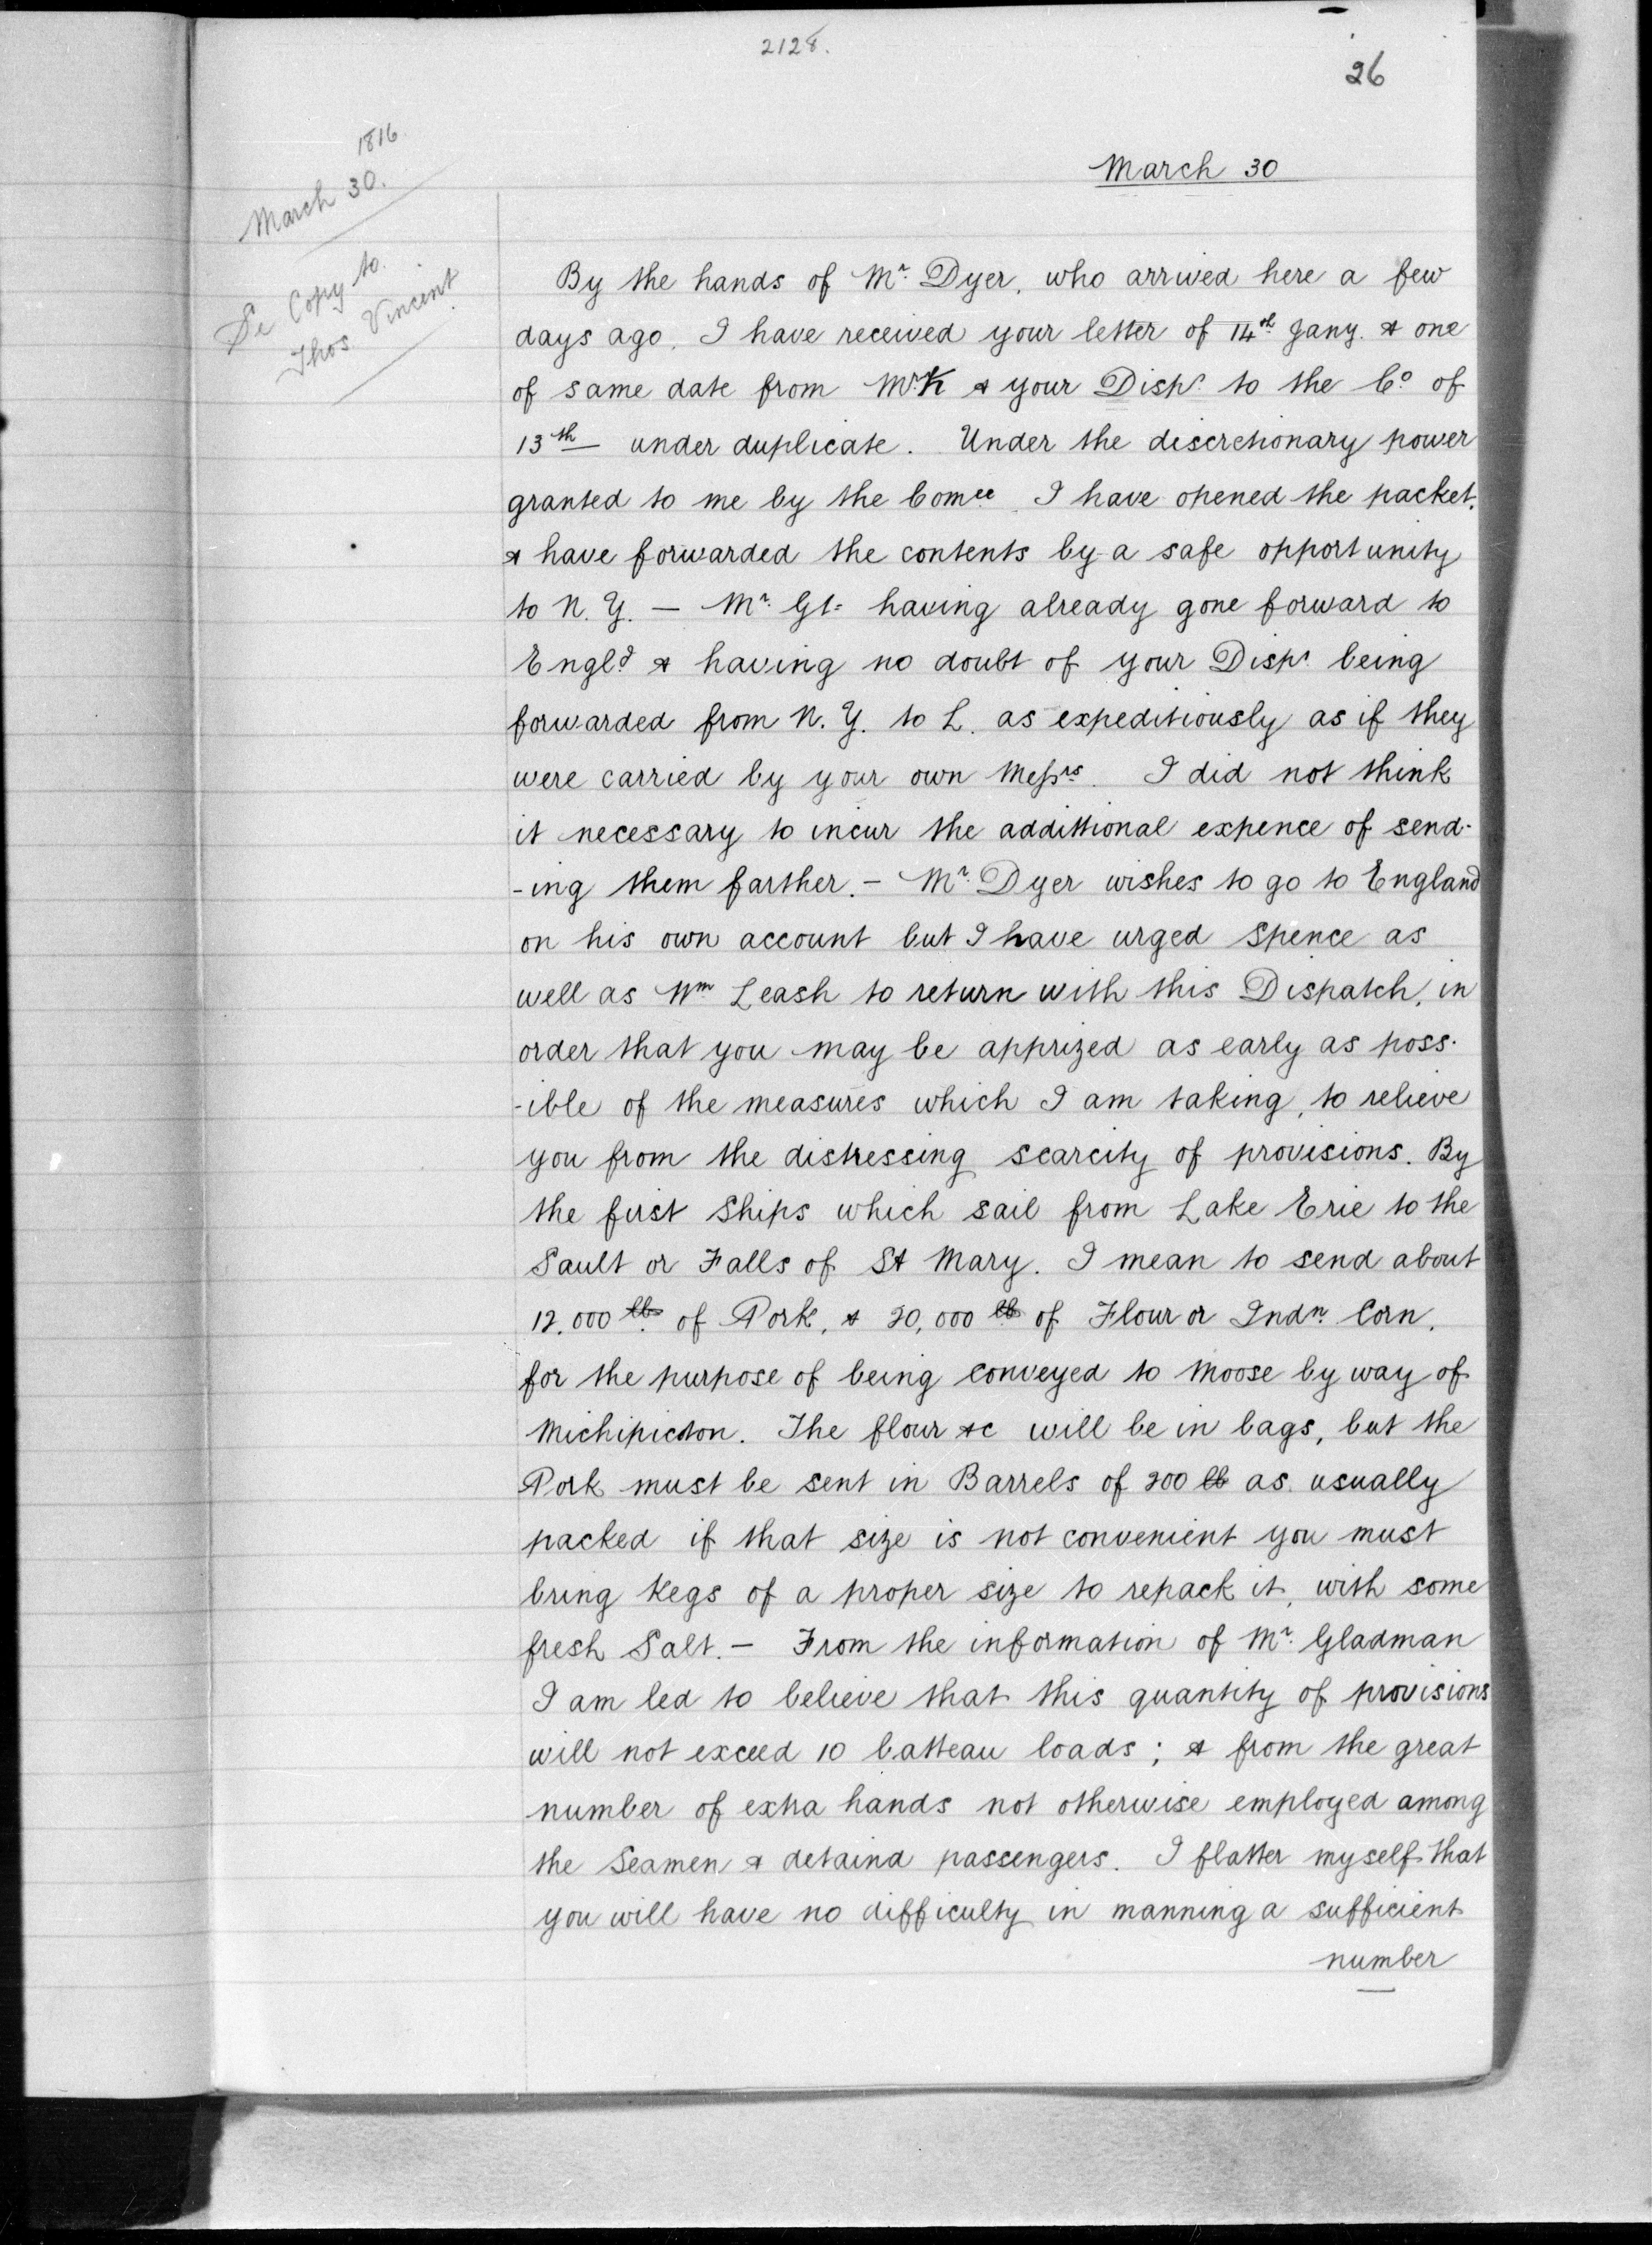 2128.
26
1816
March 30.
Se Copy to
Thos Vincent
March 30
By the hands of Mr. Dyer, who arrived here a few
days ago, I have received your letter of 14th Jany. & one
of same date from Mr K & your Dispr. to the Co. of
13th — under duplicate. Under the discretionary power
granted to me by the Comee. I have opened the packet,
& have forwarded the contents by a safe opportunity
to N. Y. — Mr. Gl- having already gone forward to
Engld. & having no doubt of your Dispr. being
forwarded from N. Y. to L. as expeditiously as if they
were carried by your own Messrs. I did not think
it necessary to incur the addittional expence of send-
-ing them farther. — Mr. Dyer wishes to go to England
on his own account but I have urged Spence as
well as Wm Leash to return with this Dispatch, in
order that you may be apprized as early as poss-
-ible of the measures which I am taking, to relieve
you from the distressing scarcity of provisions. By
the first Ships which sail from Lake Erie to the
Sault or Falls of St Mary. I mean to send about
12,000 lb. of Pork, & 20,000 lb of Flour or Indn. Corn,
for the purpose of being conveyed to Moose by way of
Michipicton. The flour &c will be in bags, but the
Pork must be sent in Barrels of 200 lb as usually
packed if that size is not convenient you must
bring Kegs of a proper size to repack it, with some
fresh Salt. — From the information of Mr. Gladman
I am led to believe that this quantity of provisions
will not exceed 10 batteau loads; & from the great
number of extra hands not otherwise employed among
the Seamen & detaind passengers. I flatter myself that
you will have no difficulty in manning a sufficient
number